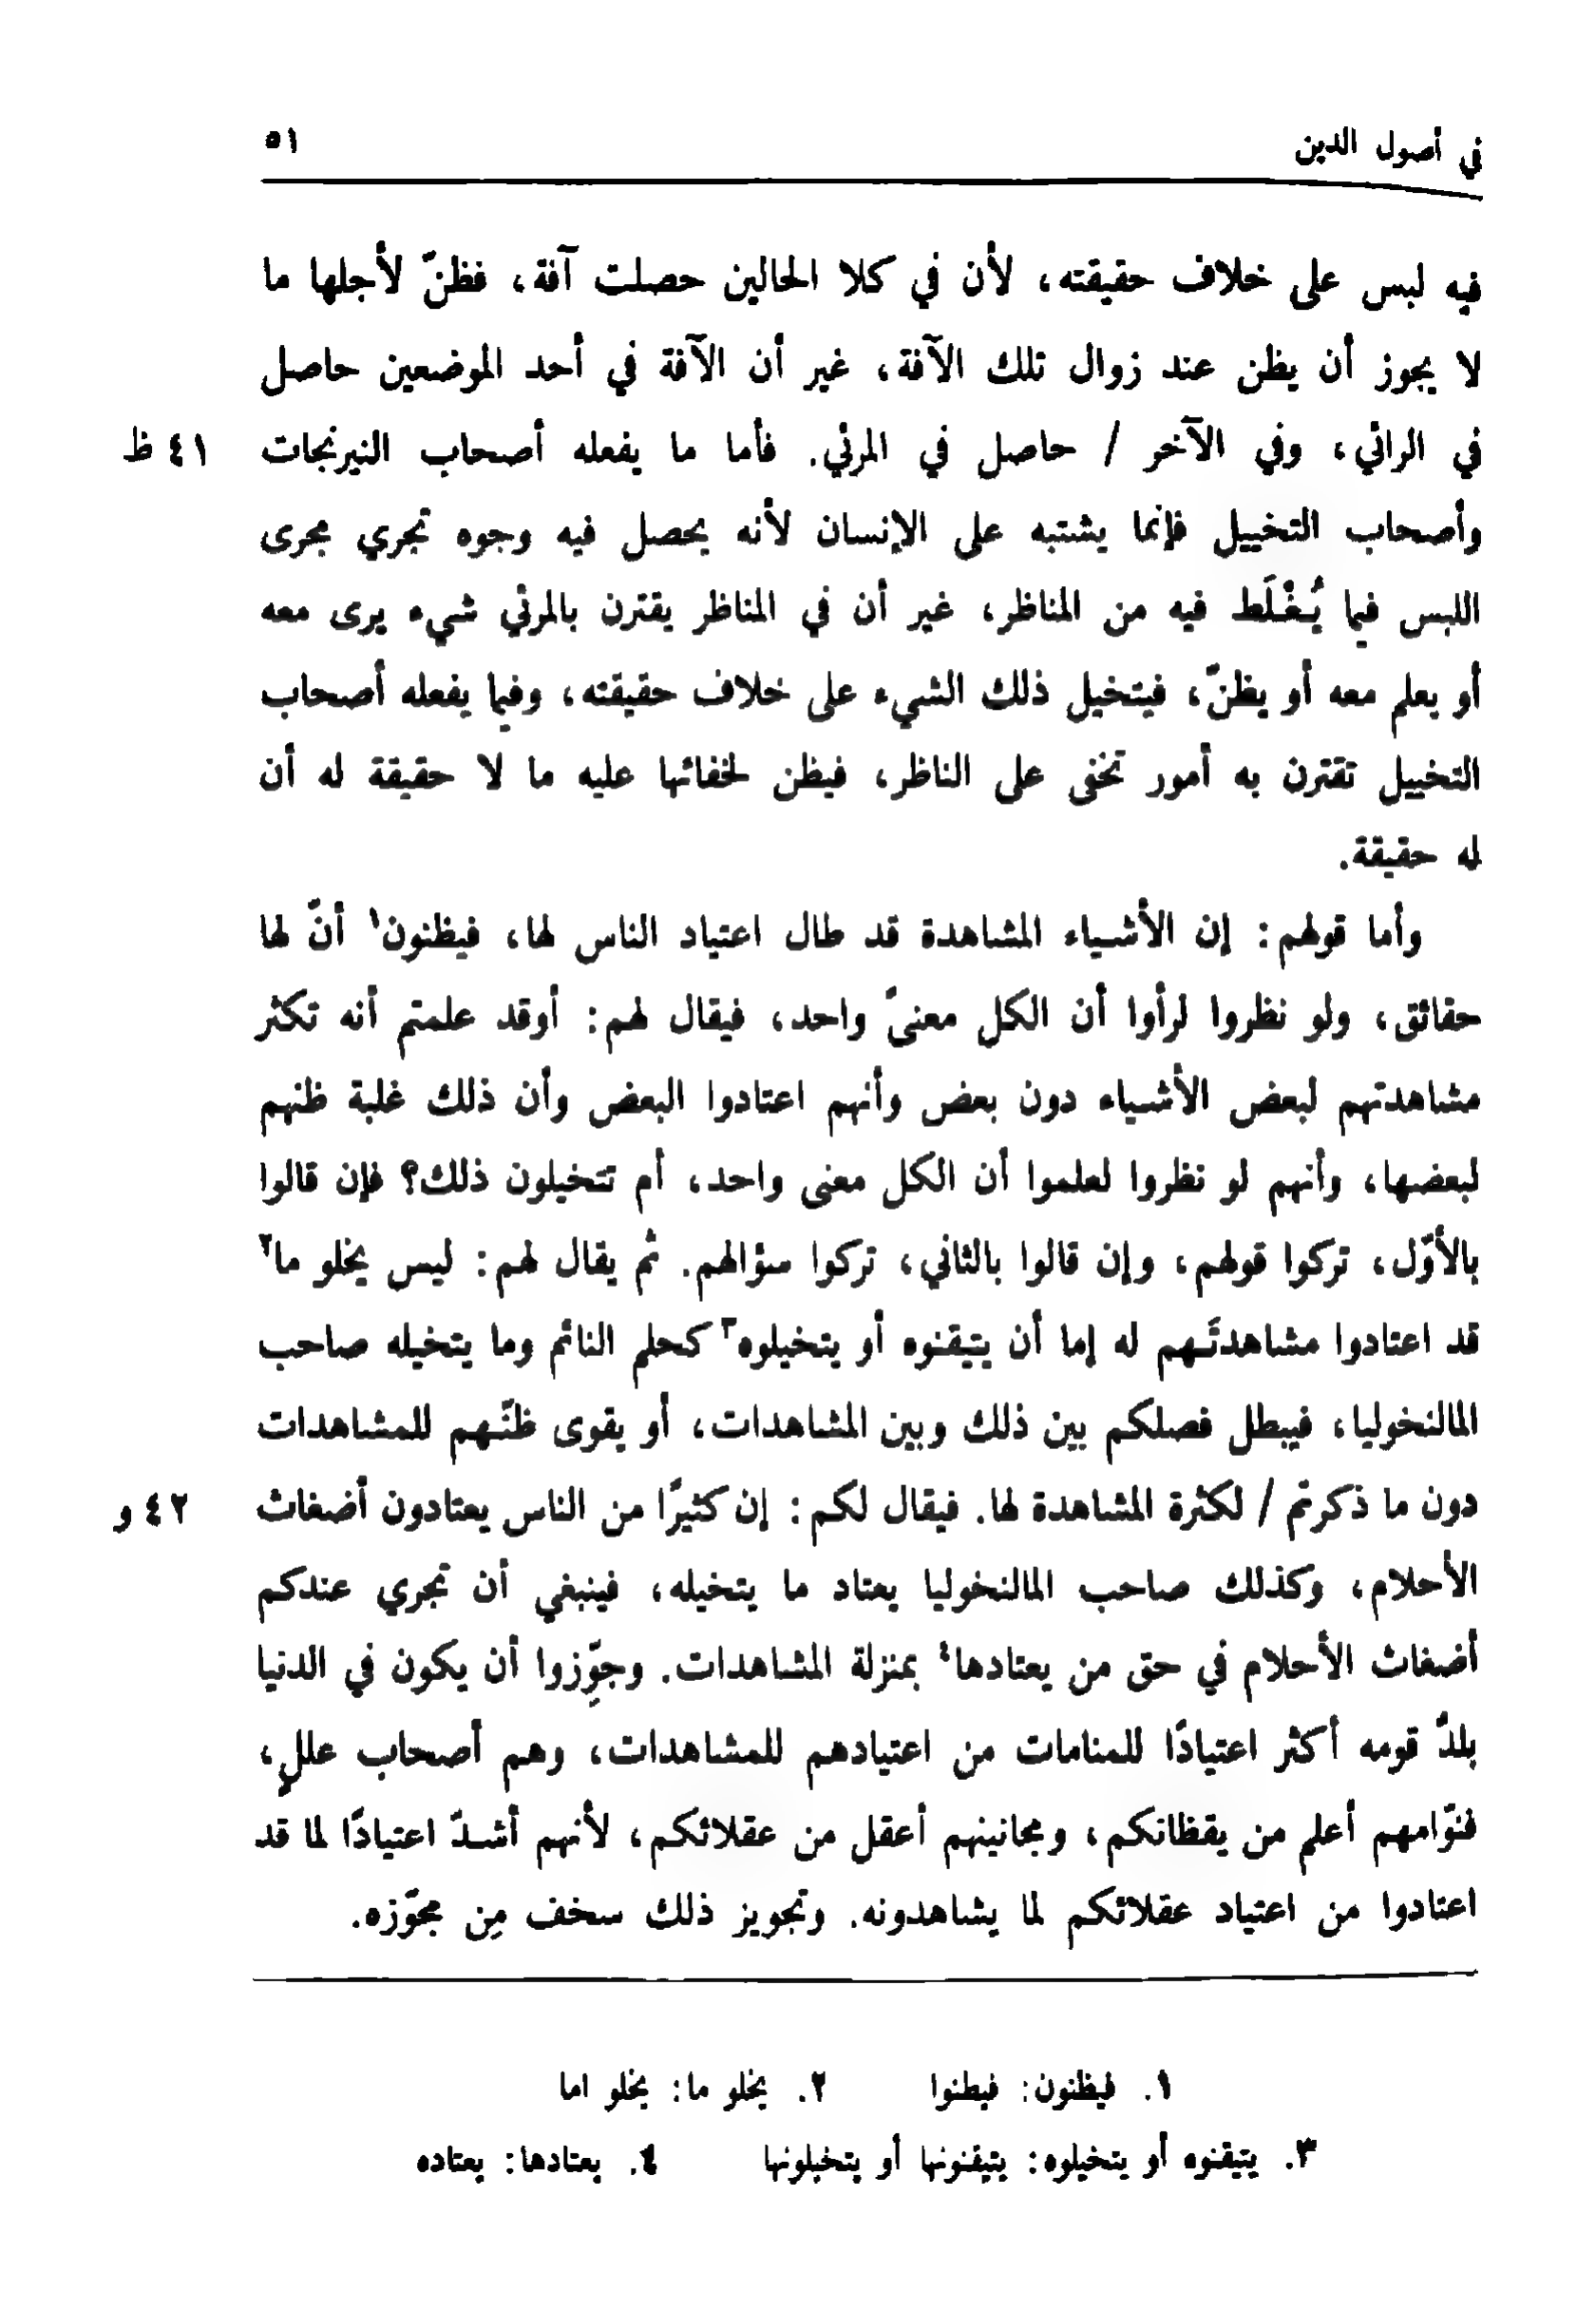 في أصول الدين ٥١
فيه لبس على خلاف حقيقته، لأن في كلا الحالين حصلت آفة، فظنّ لأجلها ما
لا يجوز أن يظن عند زوال تلك الآفة، غير أن الآفة في أحد الموضعين حاصل
في الرائي، وفي الآخر / حاصل في المرئي. فأما ما يفعله أصحاب النيرنجات ٤١ ظ
وأصحاب التخييل فإنما يشتبه على الإنسان لأنه يحصل فيه وجوه تجري مجرى
اللبس فيما يُغْلَط فيه من المناظر، غير أن في المناظر يقترن بالمرئي شيء يرى معه
أو يعلم معه أو يظنّ، فيتخيل ذلك الشيء على خلاف حقيقته، وفيما يفعله أصحاب
التخييل تقترن به أمور تخفى على الناظر، فيظن لخفائها عليه ما لا حقيقة له أن
له حقيقة.
وأما قولهم: إن الأشياء المشاهدة قد طال اعتياد الناس لها، فيظنون١ أنّ لها
حقائق، ولو نظروا لرأوا أن الكل معنىً واحد، فيقال لهم: أوقد علمتم أنه تكثر
مشاهدتهم لبعض الأشياء دون بعض وأنهم اعتادوا البعض وأن ذلك غلبة ظنهم
لبعضها، وأنهم لو نظروا لعلموا أن الكل معنى واحد، أم تتخيلون ذلك؟ فإن قالوا
بالأوّل، تركوا قولهم، وإن قالوا بالثاني، تركوا سؤالهم. ثم يقال لهم: ليس يخلو ما٢
قد اعتادوا مشاهدتَهم له إما أن يتيقنوه أو يتخيلوه٣ كحلم النائم وما يتخيله صاحب
المالنخوليا، فيبطل فصلكم بين ذلك وبين المشاهدات، أو يقوى ظنّهم للمشاهدات
دون ما ذكرتم / لكثرة المشاهدة لها. فيقال لكم: إن كثيرًا من الناس يعتادون أضغاث ٤٢ و
الأحلام، وكذلك صاحب المالنخوليا يعتاد ما يتخيله، فينبغي أن تجري عندكم
أضغاث الأحلام في حق من يعتادها٤ بمنزلة المشاهدات. وجوِّزوا أن يكون في الدنيا
بلدٌ قومه أكثر اعتيادًا للمنامات من اعتيادهم للمشاهدات، وهم أصحاب عللٍ،
فنوّامهم أعلم من يقظانكم، ومجانينهم أعقل من عقلائكم، لأنهم أشدّ اعتيادًا لما قد
اعتادوا من اعتياد عقلائكم لما يشاهدونه. وتجويز ذلك سخف مِن مجوّزه.
١. فيظنون: فيطنوا ٢. يخلو ما: يخلو اما
٣. يتيقنوه أو يتخيلوه: يتيقنونها أو يتخيلونها ٤. يعتادها: يعتاده